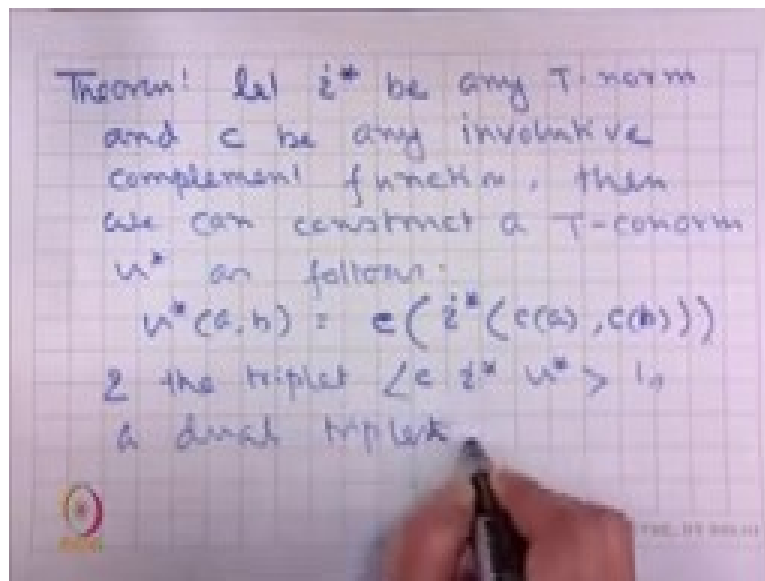 Theorem! Let i* be any T-norm
and c be any involutive
complement function, then
we can construct a T-conorm
u* as follows:
u*(a,b) = c(i*(c(a),c(b)))
& the triplet <c i* u*> is
a dual triplet
IIT DELHI